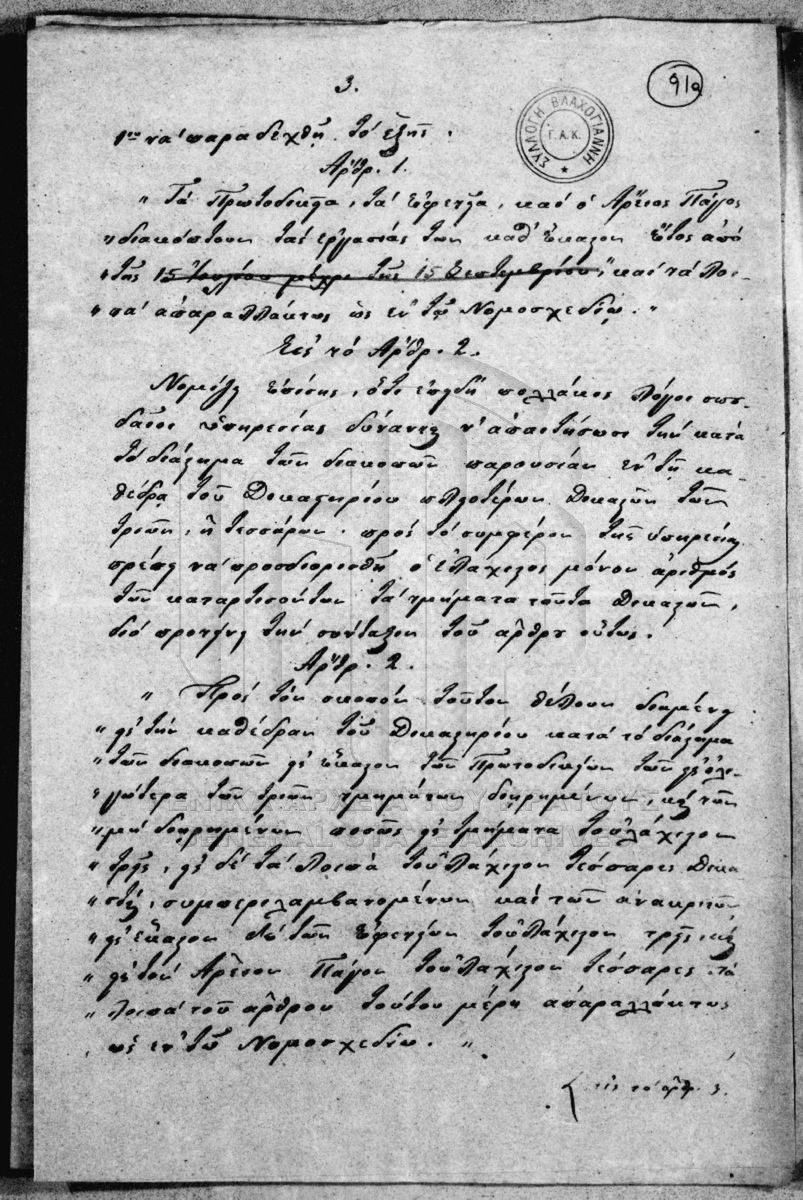 3.
91α
ΣΥΛΛΟΓΗ ΒΛΑΧΟΓΙΑΝΝΗ
Γ.Α.Κ.
1ον νὰ παραδεχθῇ τὸ ἑξῆς.
Ἄρθρ. 1.
" Τὰ Πρωτοδικεῖα, τὰ Ἐφετεῖα, καὶ ὁ Ἄρειος Πάγος
" διακόπτουν τὰς ἐργασίας των καθ' ἕκαστον ἔτος ἀπὸ
" τῆς 15 Ἰουλίου μέχρι τῆς 15 Σεπτεμβρίου, " καὶ τὰ λοι-
" πὰ ἀπαραλλάκτως ὡς ἐν τῷ Νομοσχεδίῳ. "
Εἰς τὸ Ἄρθρ. 2.
Νομίζω ἐπίσης, ὅτι ἐπειδὴ πολλάκις λόγοι σπου-
δαῖοι ὑπηρεσίας δύνανται ν' ἀπαιτήσωσι τὴν κατὰ
τὸ διάστημα τῶν διακοπῶν παρουσίαν ἐν τῇ κα-
θέδρᾳ τοῦ Δικαστηρίου πλειοτέρων Δικαστῶν τῶν
τριῶν, ἢ τεσσάρων. πρὸς τὸ συμφέρον τῆς ὑπηρεσίας
πρέπει νὰ προσδιορισθῇ ὁ ἐλάχιστος μόνον ἀριθμὸς
τῶν καταρτισόντων τὰ τμήματα ταῦτα Δικαστῶν,
διὸ προτείνω τὴν σύνταξιν τοῦ ἄρθρου οὕτως.
Ἄρθρ. 2.
" Πρὸς τὸν σκοπὸν τοῦτον θέλουν διαμένει
" εἰς τὴν καθέδραν τοῦ Δικαστηρίου κατὰ τὸ διάστημα
" τῶν διακοπῶν εἰς ἕκαστον τῶν Πρωτοδικείων τῶν εἰς ὀλι-
" γώτερα τῶν τριῶν τμημάτων διῃρημένων, καὶ τῶν
" μὴ διῃρημένων ποσῶς εἰς τμήματα τοὐλάχιστον
" τρεῖς, εἰς δὲ τὰ λοιπὰ τοὐλάχιστον τέσσαρες Δικα-
" σταί, συμπεριλαμβανομένων καὶ τῶν ἀνακριτῶν,
" εἰς ἕκαστον δὲ τῶν Ἐφετείων τοὐλάχιστον τρεῖς καὶ
" εἰς τὸν Ἄρειον Πάγον τοὐλάχιστον τέσσαρες. τὰ
" λοιπὰ τοῦ ἄρθρου τούτου μέρη ἀπαραλλάκτως
" ὡς ἐν τῷ Νομοσχεδίῳ. "
εἰς τὸ ἄρθρ. 3.